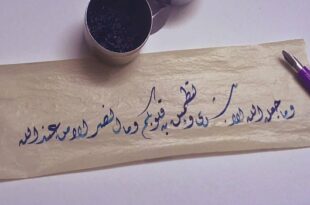 وما جعله الله الا بشرى ولتطمئن به قلوبكم وما النصر الا من عند الله